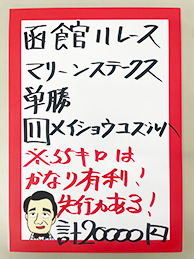 函館11レース
マリーンステークス
単勝
11メイショウコズルヘ
※55キロは
かなり有利!
先行力ある!
計20000円